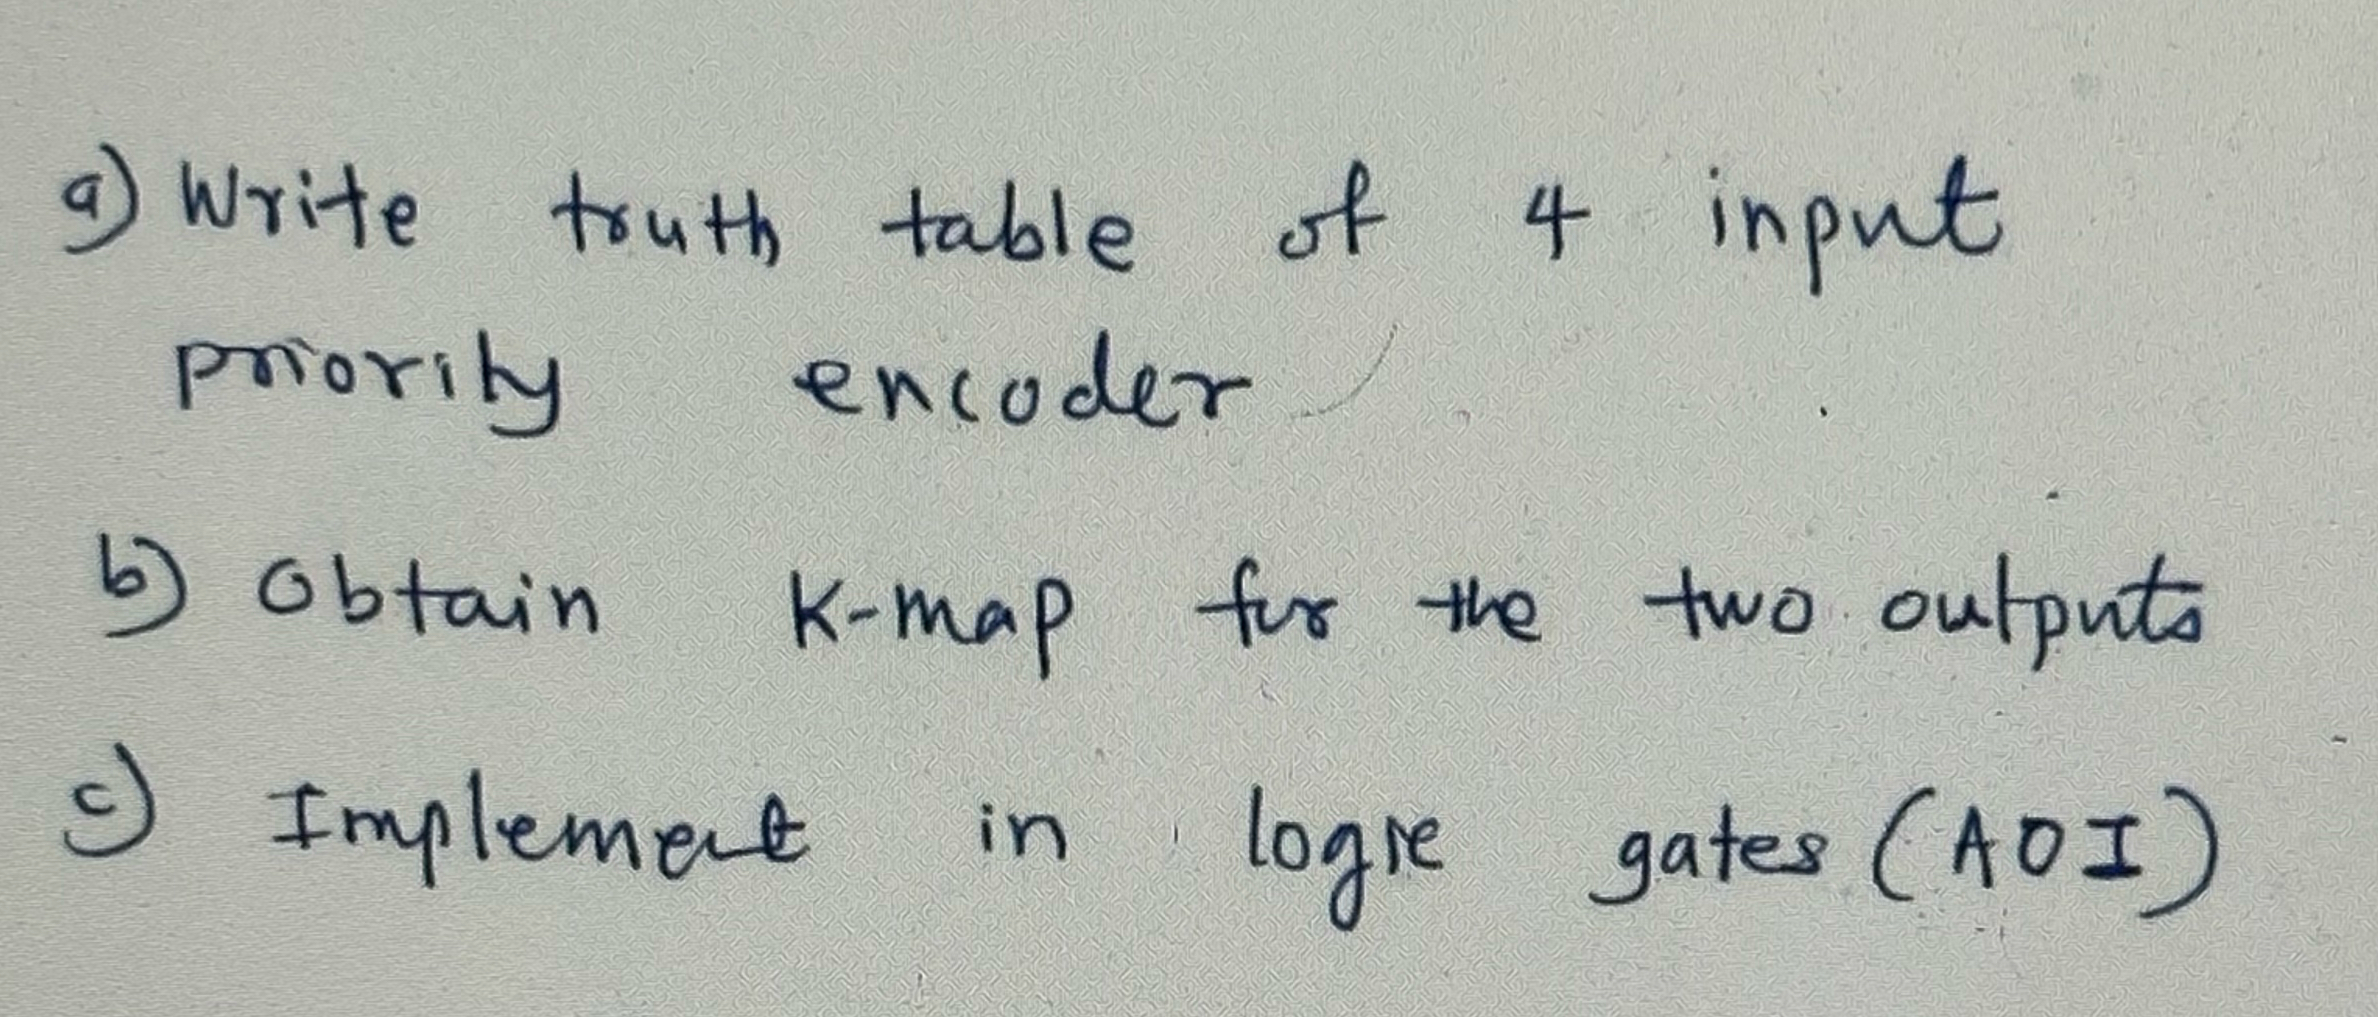 a) Write truth table of 4 input
priority encoder
b) Obtain K-map for the two outputs
c) Implement in logic gates (AOI)